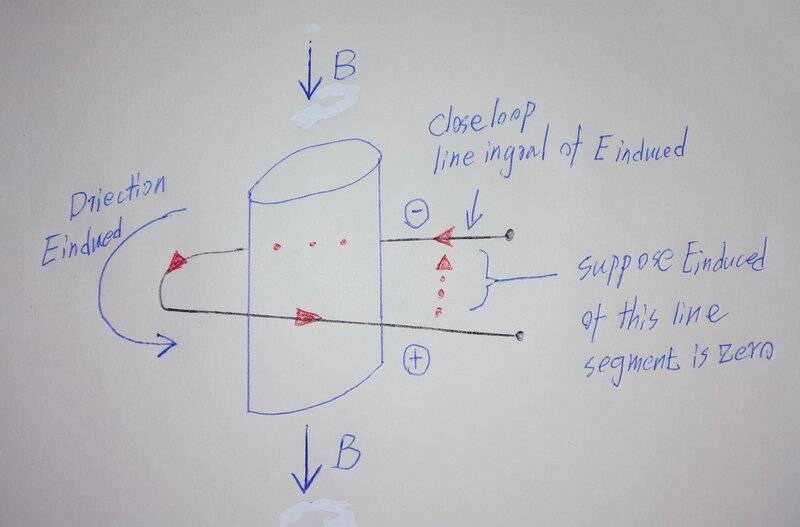 B
closeloop
line ingral of Einduced
Driection
Einduced
-
suppose Einduced
of this line
segment is zero
+
B